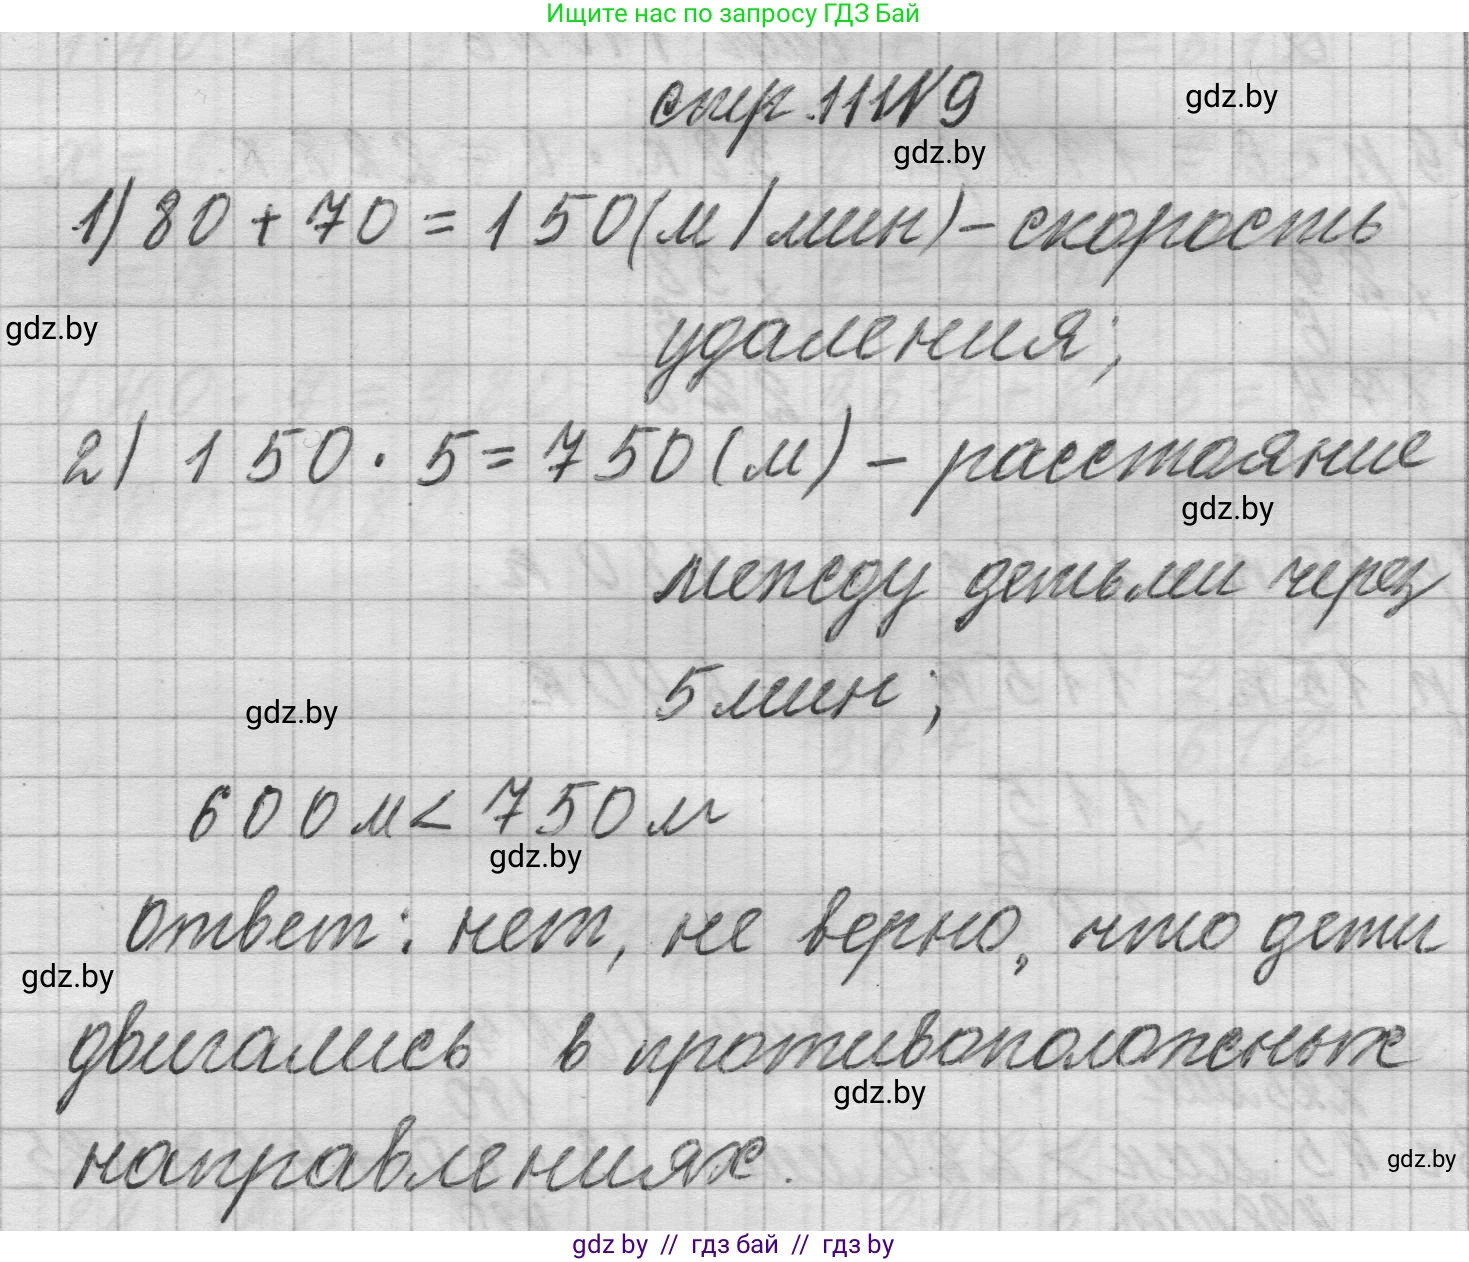 Ищите нас по запросу ГДЗ Бай
стр. 111 №9
gdz.by
gdz.by
1) 80 + 70 = 150 (м/мин) - скорость
gdz.by
удаления;
2) 150 · 5 = 750 (м) - расстояние
gdz.by
между детьми через
5 мин;
gdz.by
600 м < 750 м
gdz.by
Ответ: нет, не верно, что дети
gdz.by
двигались в противоположных
gdz.by
направлениях.
gdz.by
gdz by // гдз бай // gdz by